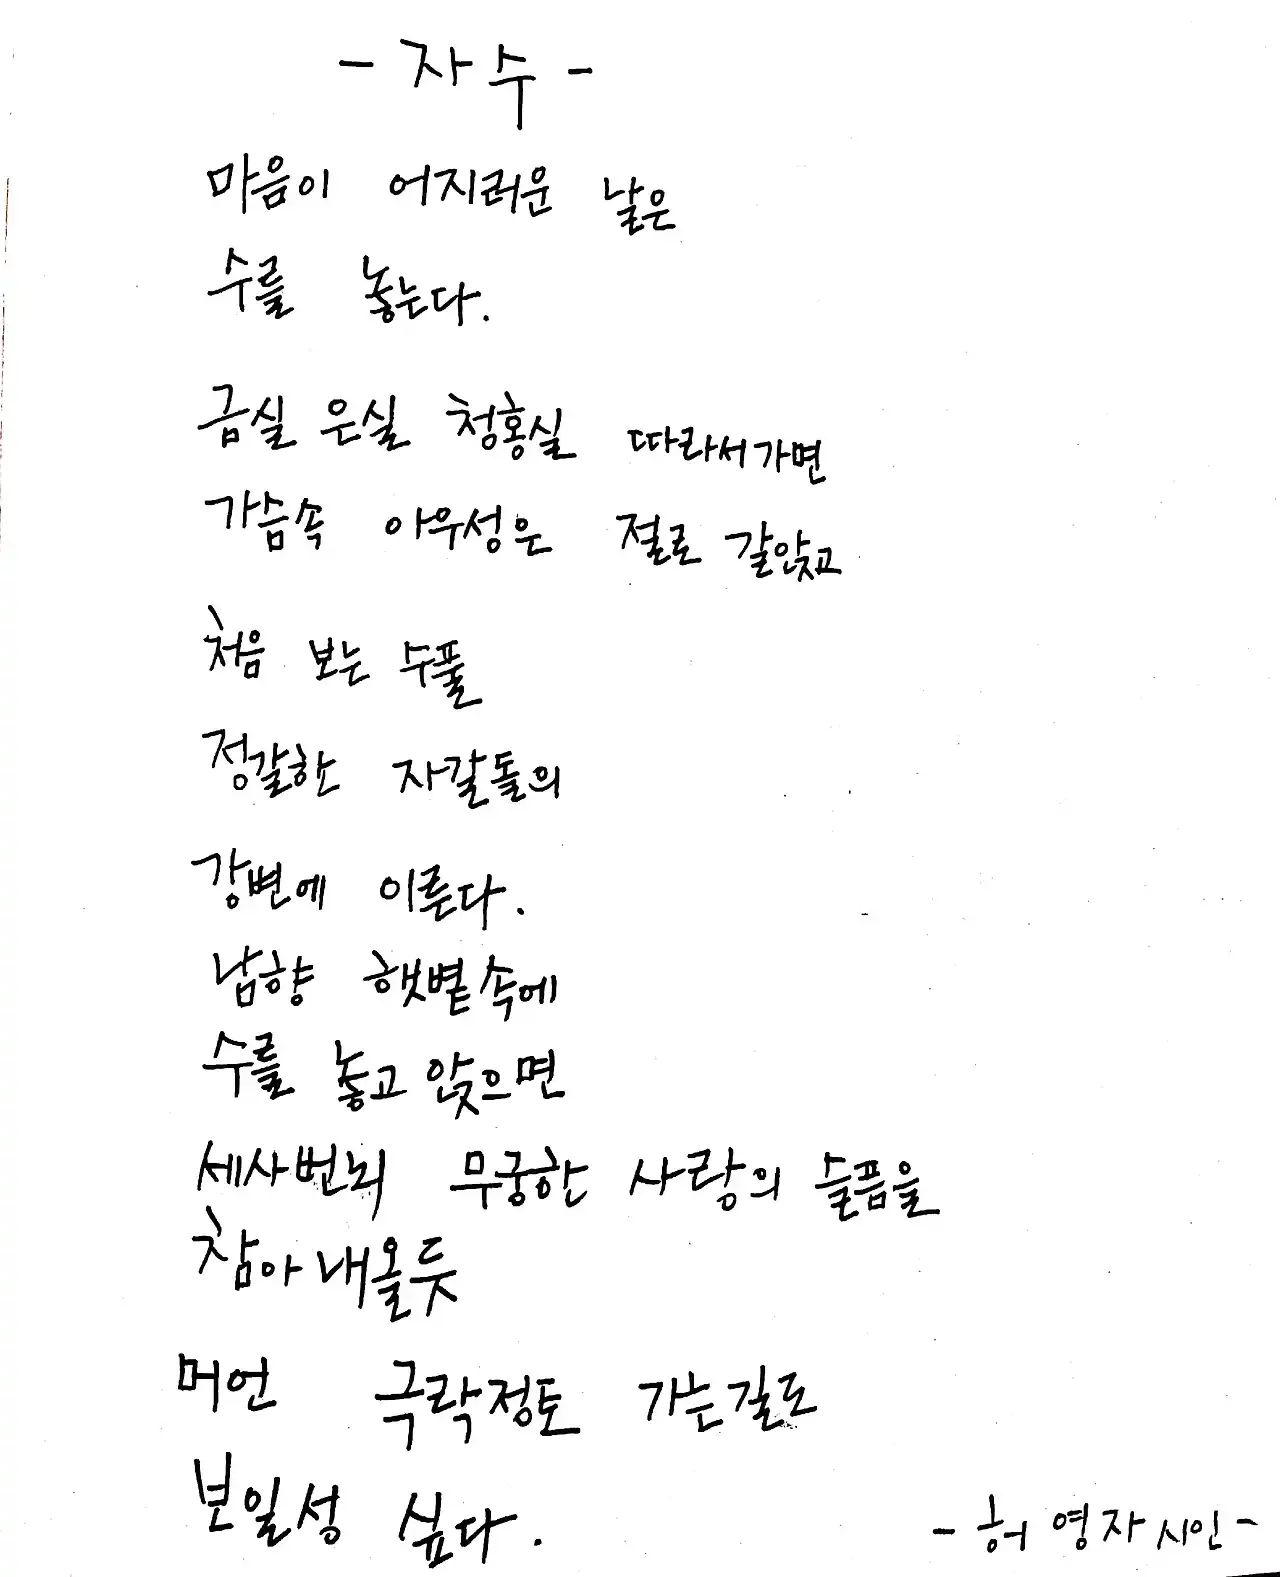 - 자수 -
마음이 어지러운 날은
수를 놓는다.
금실 은실 청홍실 따라서가면
가슴속 아우성은 절로 갈앉고
처음 보는 수풀
정갈한 자갈돌의
강변에 이른다.
남향 햇볕속에
수를 놓고 앉으면
세사번뇌 무궁한 사랑의 슬픔을
참아내올듯
머언 극락정토 가는길도
보일성 싶다.
- 허영자 시인 -